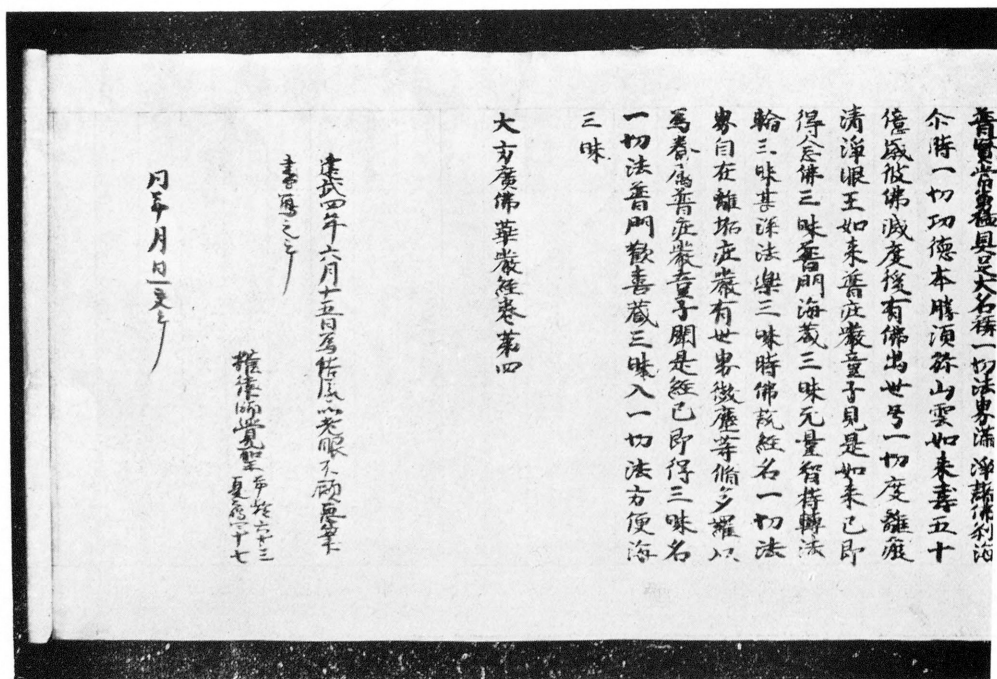 普賢常
具足大名稱一切法界滿淨
佛刹海
尒時一切功德本勝須弥山雲如来壽五十
億歳彼佛滅度後有佛出世号一切度離癡
清淨眼王如来普庄嚴童子見是如来已即
得念佛三昧普門海蔵三昧无量智持轉法
輪三昧甚深法樂三昧時佛説経名一切法
界自在離垢庄嚴有世界微塵等脩多羅以
為眷属普庄嚴童子聞是経已即得三昧名
一切法普門歡喜蔵三昧入一切法方便海
三昧
大方廣佛華嚴経巻第四
建武四年六月十五日為
以老眼不顧悪筆
書寫之了
律師覺聖
六十三
同年月日一交了